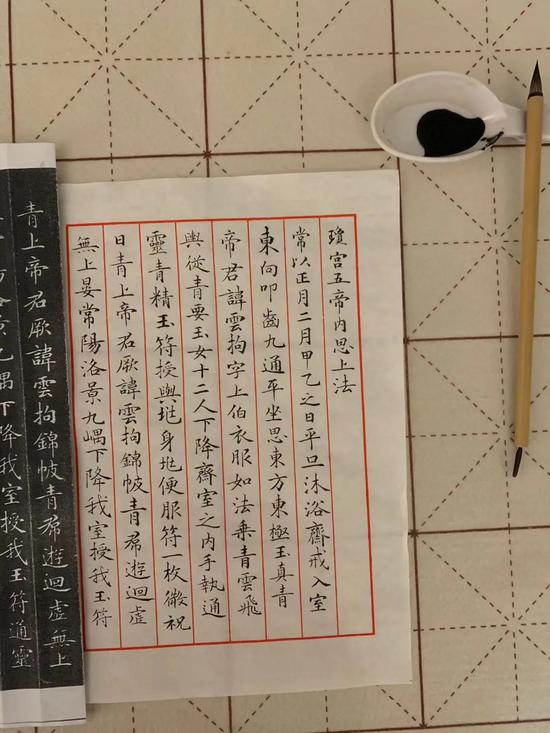 瓊宫五帝内思上法
常以正月二月甲乙之日平旦沐浴齋戒入室
東向叩齒九通平坐思東方東極玉真青
帝君諱雲拘字上伯衣服如法乗青雲飛
輿從青要玉女十二人下降齋室之内手執通
靈青精玉符授與兆身兆便服符一枚微祝
日青上帝君厥諱雲拘錦帔青帬遊迴虚
無上晏常陽洛景九嵎下降我室授我玉符
青上帝君厥諱雲拘錦帔青帬遊迴虚無上
景九嵎下降我室授我玉符通靈